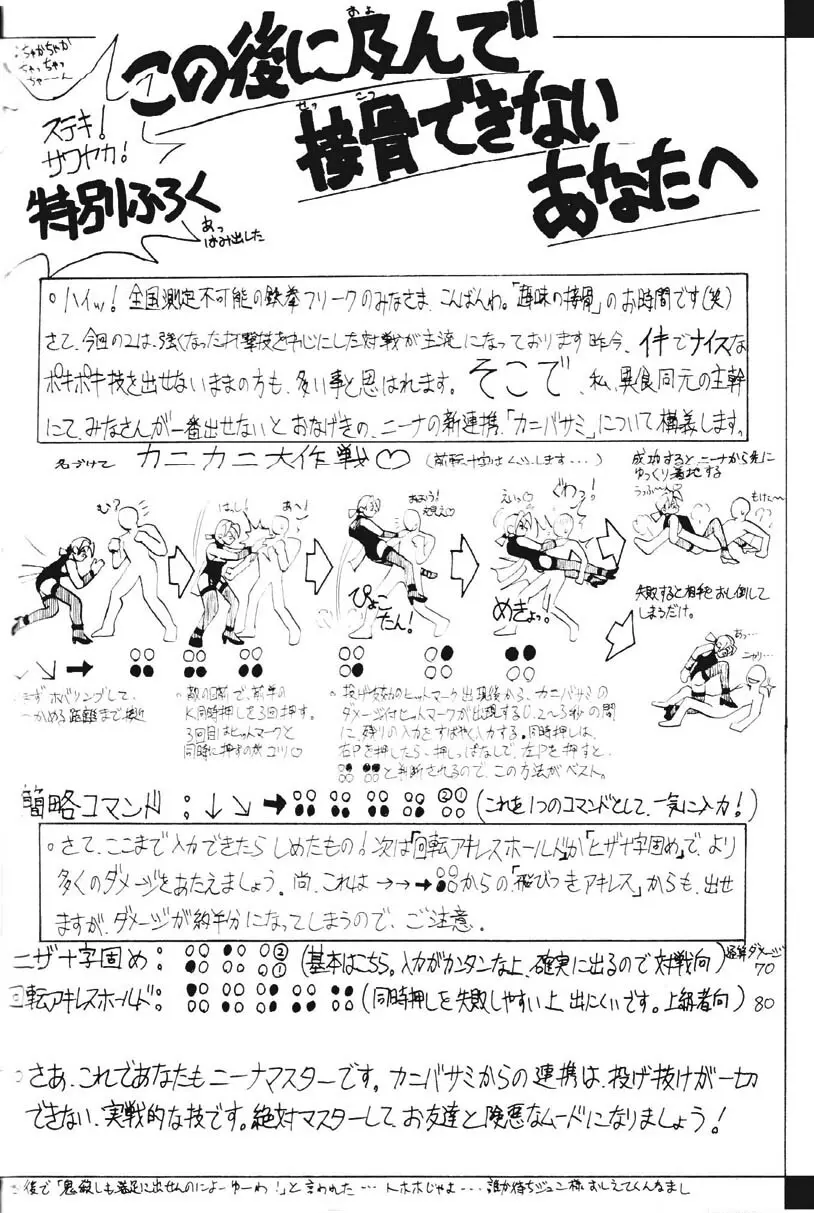 ちゃかちゃか
ちゃっちゃっ
ちゃーーん
この後に及んで
およ
接骨できない
せっ こつ
あなたへ
ステキ!
サワヤカ!
特別ふろく
あっ
はみ出した
○ハイッ!全国測定不可能の鉄拳フリークのみなさま、こんばんわ。「趣味の接骨」のお時間です(笑)
さて、今回の2は、強くなった打撃技を中心にした対戦が主流になっております昨今、イキでナイスな
ポキポキ技を出せないままの方も、多い事と思はれます。そこで、私、異食同元の主幹
にて、みなさんが一番出せないとおなげきの、ニーナの新連携、「カニバサミ」について構義します。
名づけて カニカニ大作戦♡
成功すると、ニーナから先に
ゆっくり着地する
うっふ〜ん
もけた〜
む?
はし!
あ〜!
えいっ♡
ぐわっ!
ぴょこ
たん!
めきょっ。
失敗すると相手をおし倒して
しまうだけ。
あっ…
ニヤリ…
↘ → ○○●● ○○●● ○○●● ○○●●
○敵の目前で、前半の
K同時押しを3回押す。
3回目はヒットマークと
同時に押すのがコツ♡
○投げ有効のヒットマーク出現後から、カニバサミの
ダメージ付ヒットマークが出現する0.2〜3秒の間
に、残りの入力をすばやく入力する。同時押しは、
右Pを押したら、押しっぱなしで、左Pを押すと、
と判断されるので、この方法がベスト。
簡略コマンド:↓↘➡ (これを1つのコマンドとして、一気に入力!)
○さて、ここまで入力できたらしめたもの!次は「回転アキレスホールド」か「ヒザ十字固め」で、より
多くのダメージをあたえましょう。尚、これは→→→ からの「飛びつきアキレス」からも、出せ
ますが、ダメージが約半分になってしまうので、ご注意。
ヒザ十字固め: (基本はこちら。入力がカンタンな上、確実に出るので対戦向) 70
回転アキレスホールド: (同時押しを失敗しやすい上、出にくいです。上級者向) 80
○さあ、これであなたもニーナマスターです。カニバサミからの連携は、投げ抜けが一切
できない、実戦的な技です。絶対マスターして、お友達と険悪なムードになりましょう!
後で「鬼殺しも満足に出せんのによーゆーわ!」と言われた…トホホじゃよ…